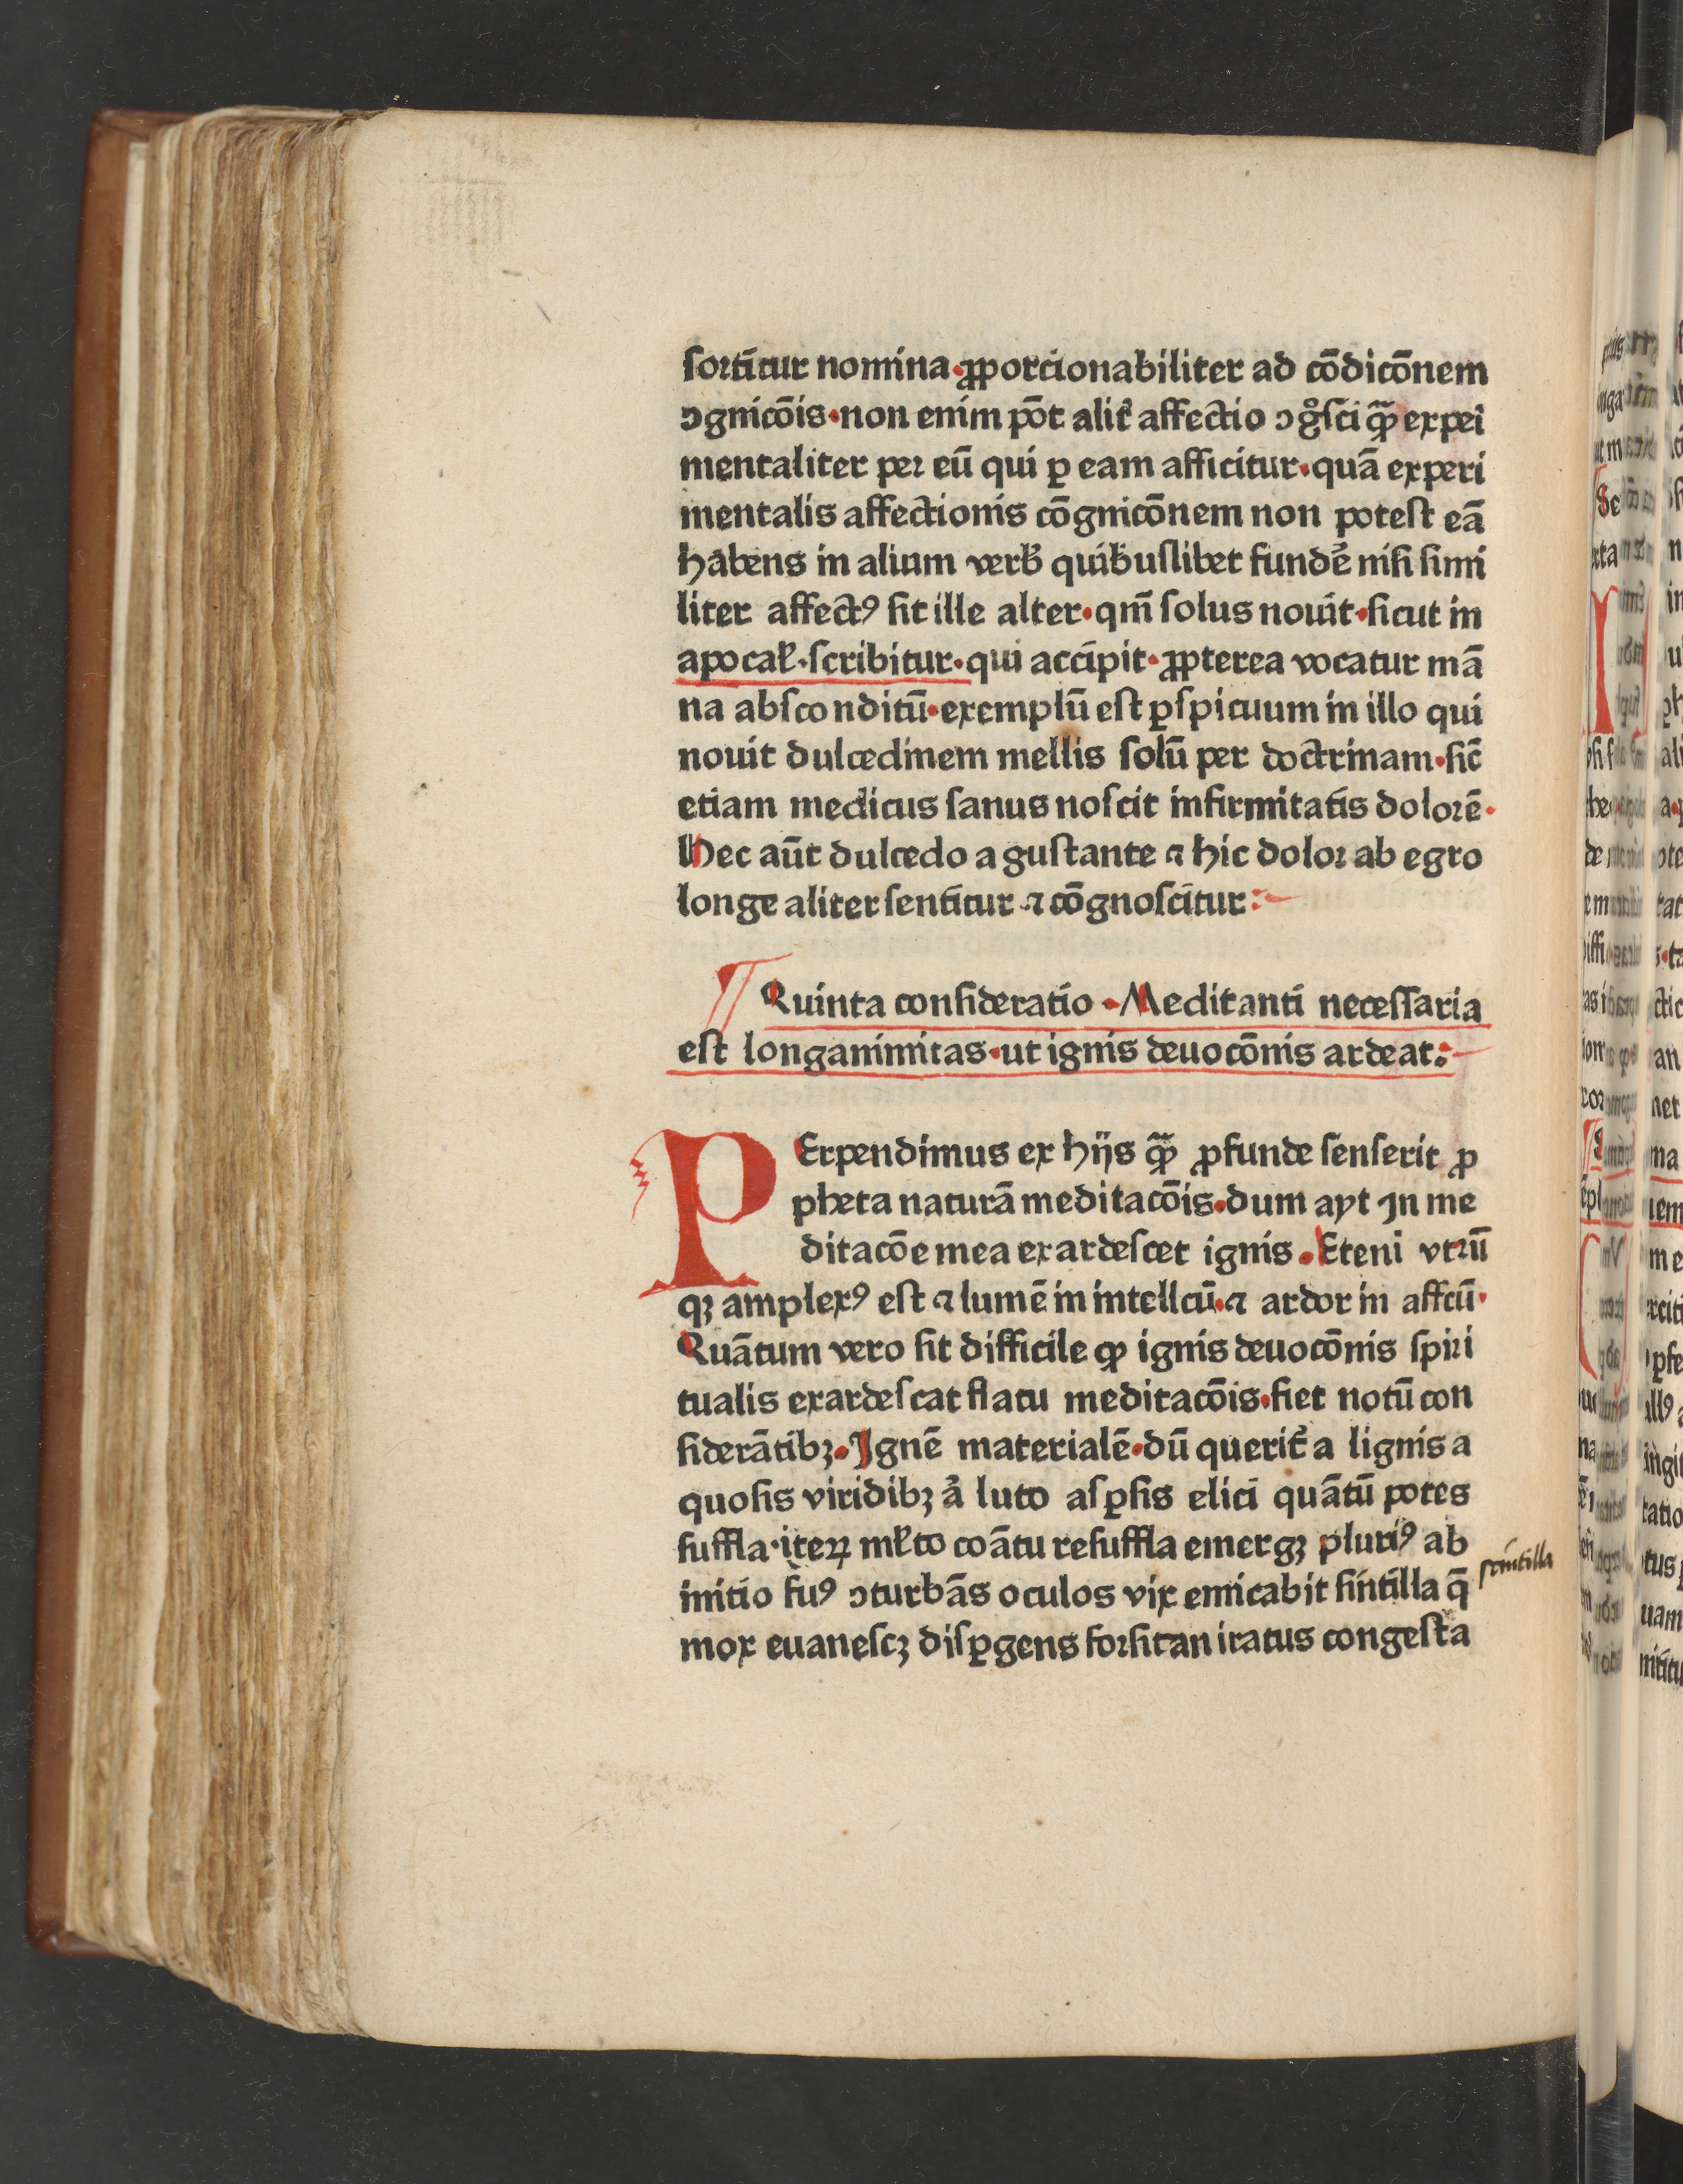 sortitur nomina·ꝓporcionabiliter ad cōdicōnem
ↄgnicōis·non enim pōt alit᷑ affectio ↄgͦsci qꝫ̄ expei
mentaliter per eū qui ꝑ eam afficitur·quā experi
mentalis affectionis cōgnicōnem non potest eā
habens in alium verb̕ quibuslibet fundē nisi simi
liter affectꝰ sit ille alter·qm̄ solus nouit·sicut in
apocal̕·scribitur·qui accipit·ꝓpterea vocatur mā
na absconditū·exemplū est ꝑspicuum in illo qui
nouit dulcedinem mellis solū per doctrinam·sic̄
etiam medicus sanus noscit infirmitatis dolorē·
Hec aūt dulcedo a gustante ⁊ hic dolor ab egro
longe aliter sentitur ⁊ cōgnoscitur:
¶ Quinta consideratio·Meditanti necessaria
est longanimitas·ut ignis deuocōnis ardeat:
PErpendimus ex hijs qꝫ̄ ꝓfunde senserit ꝓ
pheta naturā meditacōis·dum ayt Jn me
ditacōe mea exardescet ignis·Eteni vtrū
qꝫ amplexꝰ est ⁊ lumē in intellcū·⁊ ardor in affcū·
Quātum vero sit difficile ꝙ ignis deuocōnis spiri
tualis exardescat flatu meditacōis·fiet notū con
siderātibꝫ·Jgnē materialē·dū querit᷑ a lignis a
quosis viridibꝫ a̓ luto asꝑsis elici quātū potes
suffla·iteꝝ ml̕to coātu resuffla emergꝫ pluriꝰ ab
initio fuꝰ ↄturbās oculos vix emicabit sintilla q̄
scintilla
mox euanescꝫ disꝑgens forsitan iratus congesta